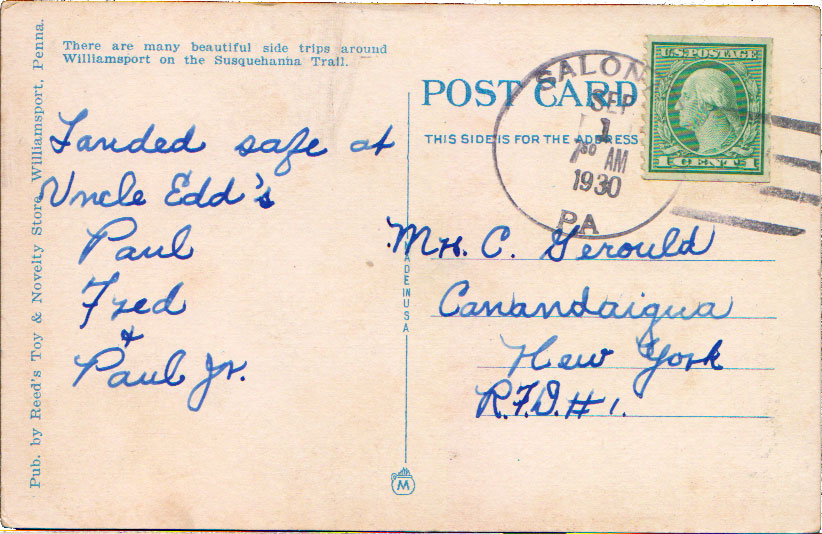 There are many beautiful side trips around
Williamsport on the Susquehanna Trail.
Pub. by Reed's Toy & Novelty Store, Williamsport, Penna.
Landed safe at
Uncle Edd's
Paul
Fred
&
Paul Jr.
POST CARD
THIS SIDE IS FOR THE ADDRESS
MADE IN USA
M
SALONA
SEP
1
7 30 AM
1930
PA
U.S. POSTAGE
1 CENT 1
Mr. C. Gerould
Canandaigua
New York
R.F.D. # 1.